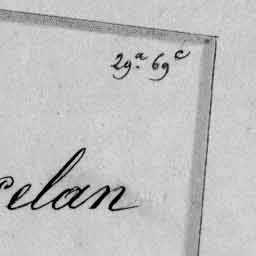 29.a 69c
celan